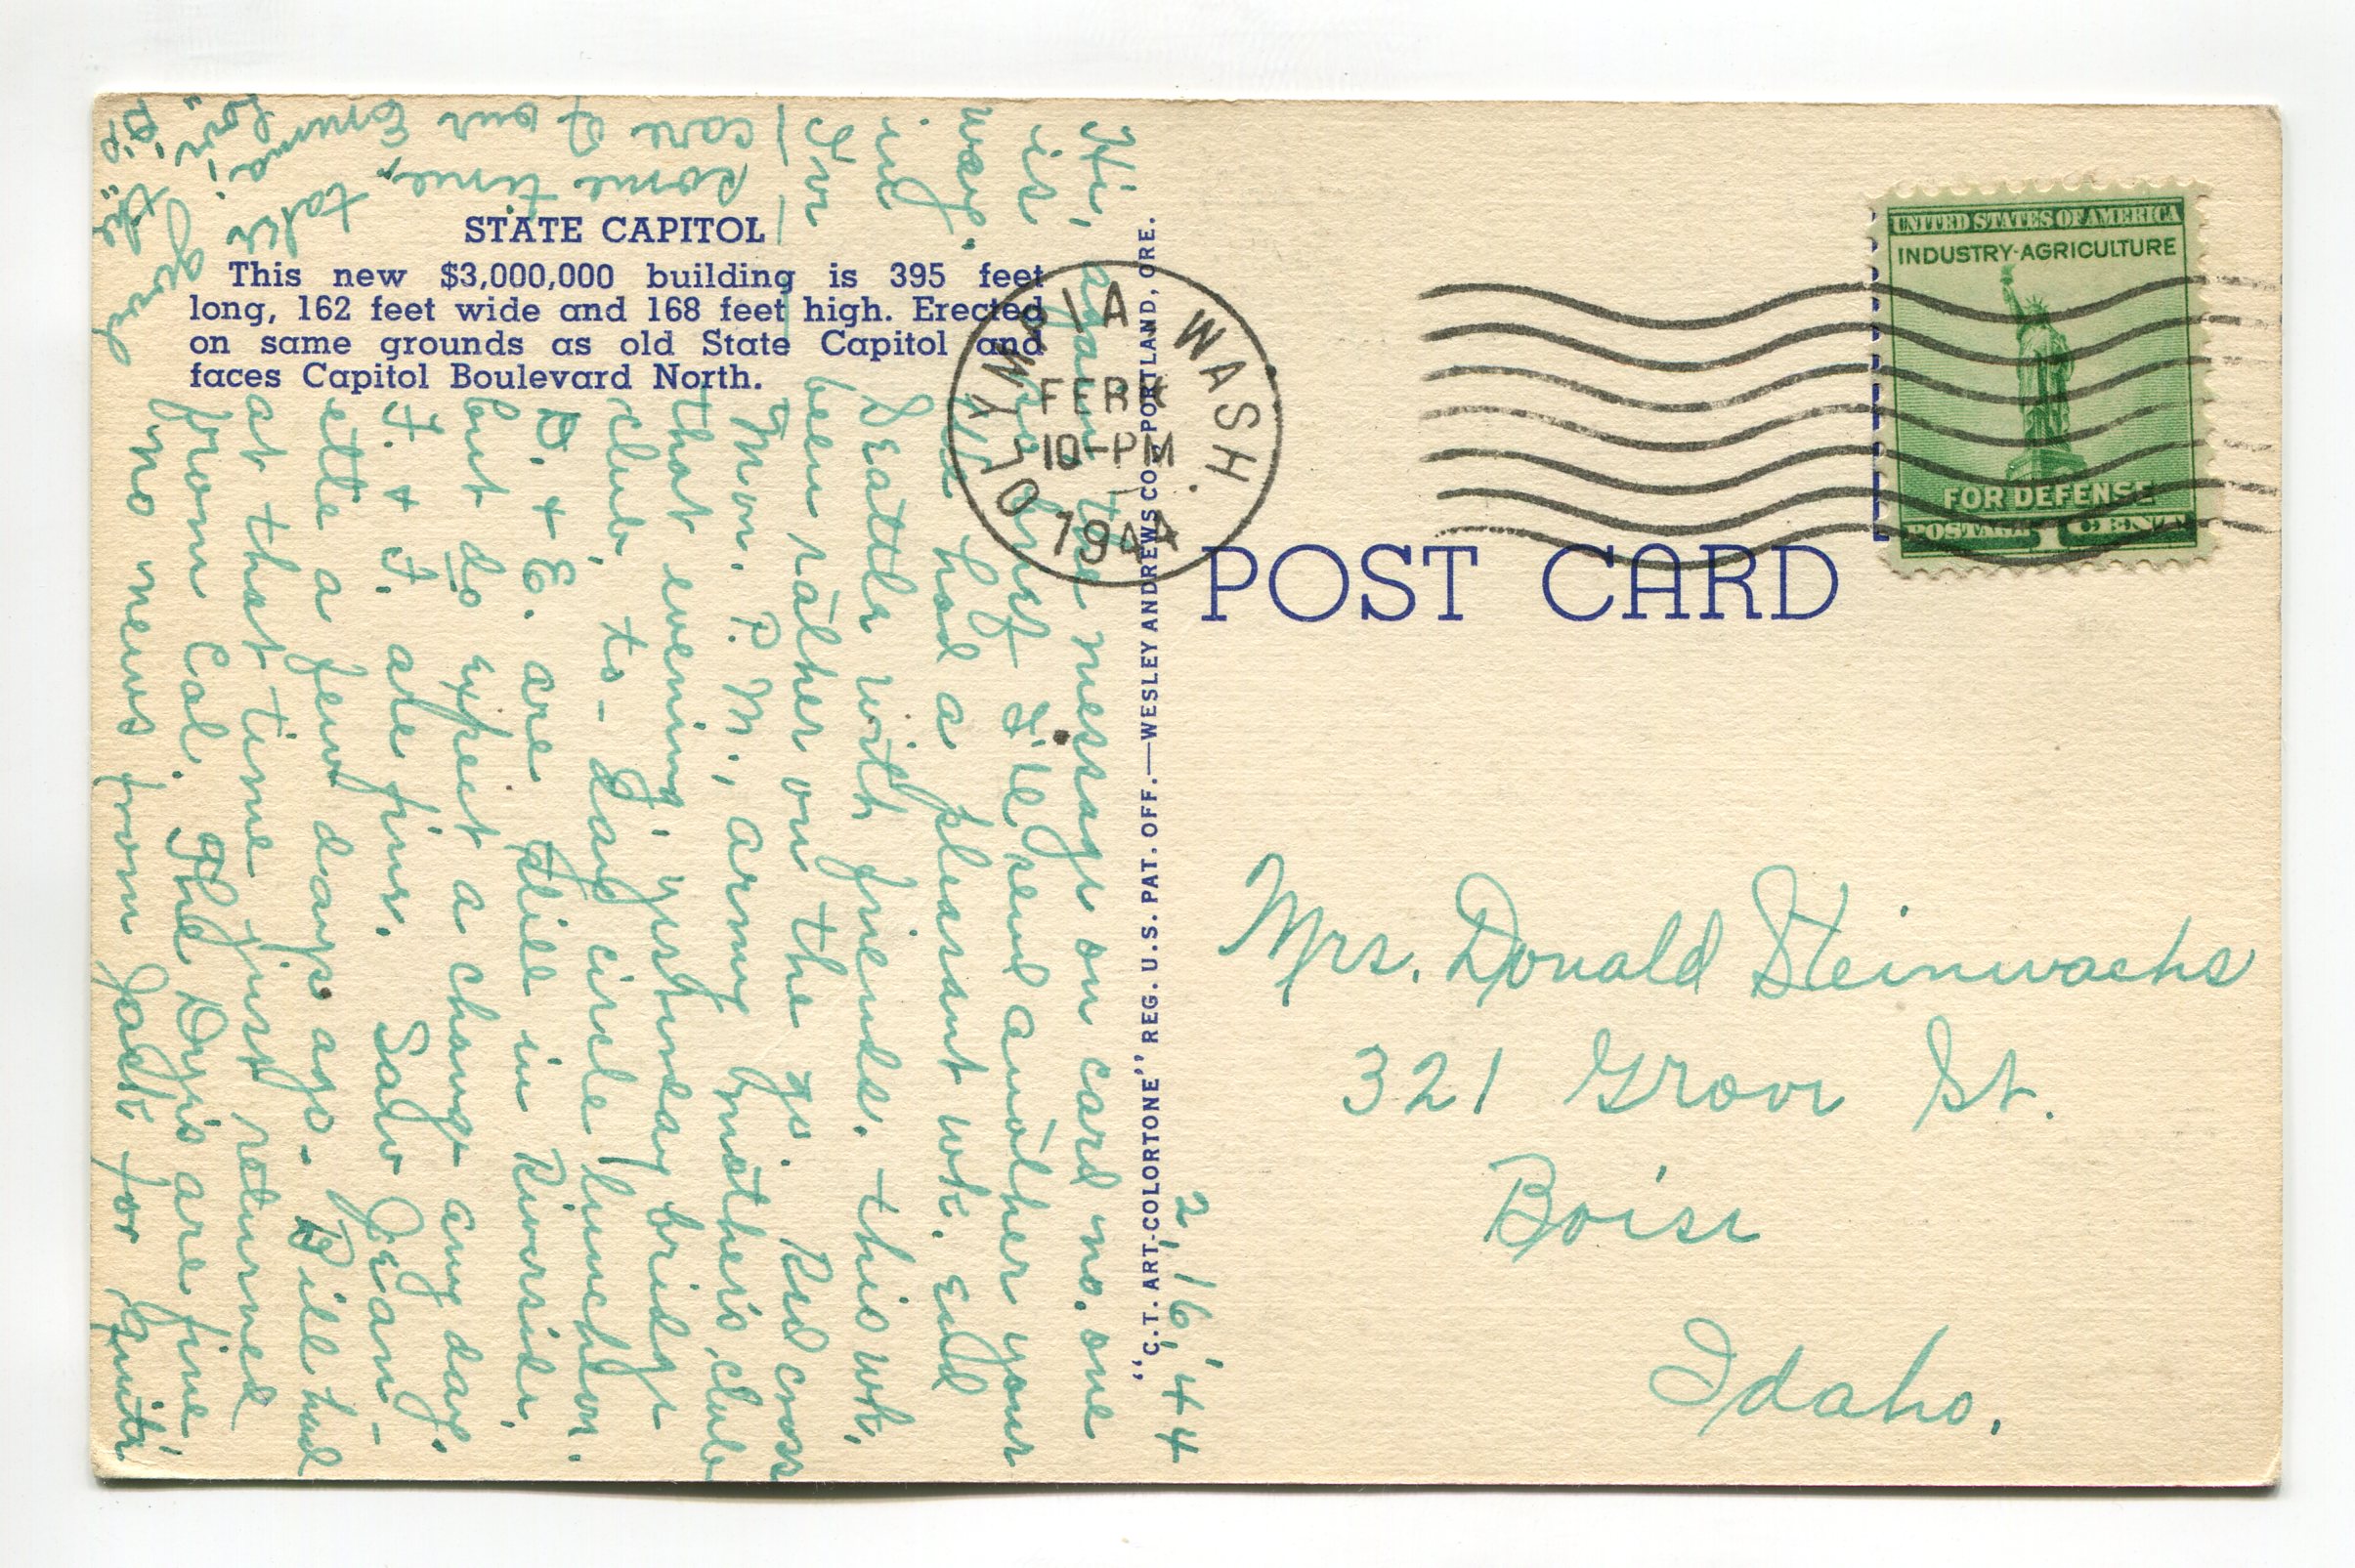 STATE CAPITOL
This new $3,000,000 building is 395 feet
long, 162 feet wide and 168 feet high. Erected
on same grounds as old State Capitol and
faces Capitol Boulevard North.
"C.T. ART-COLORTONE" REG. U.S. PAT. OFF.—WESLEY ANDREWS CO., PORTLAND, ORE.
POST CARD
OLYMPIA WASH.
FEB
10-PM
1944
UNITED STATES OF AMERICA
INDUSTRY-AGRICULTURE
FOR DEFENSE
POSTAGE 1 CENT
2, 16, '44
Hi, again the message on card no. one
is brief I'll send another your
way. had a pleasant wk. end
in Seattle with friends. This wk.
I've been rather on the go. Red Cross
Mon. P. M., army mother's club
that evening, yesterday bridge
club, to-day circle luncheon.
D. & E. are still in Riverside,
but do expect a change any day.
F. & J. are fine. Saw Jean-
ette a few days ago - Bill had
at that time just returned
from Cal. The Dyi's are fine
no news from Jack for quite
some time, take
care of our Emma.
Love
Mrs. Donald Steinwachs
321 Grove St.
Boise
Idaho.